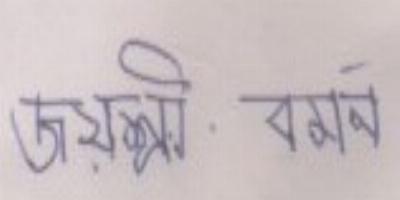 জয়শ্রী. বর্মন